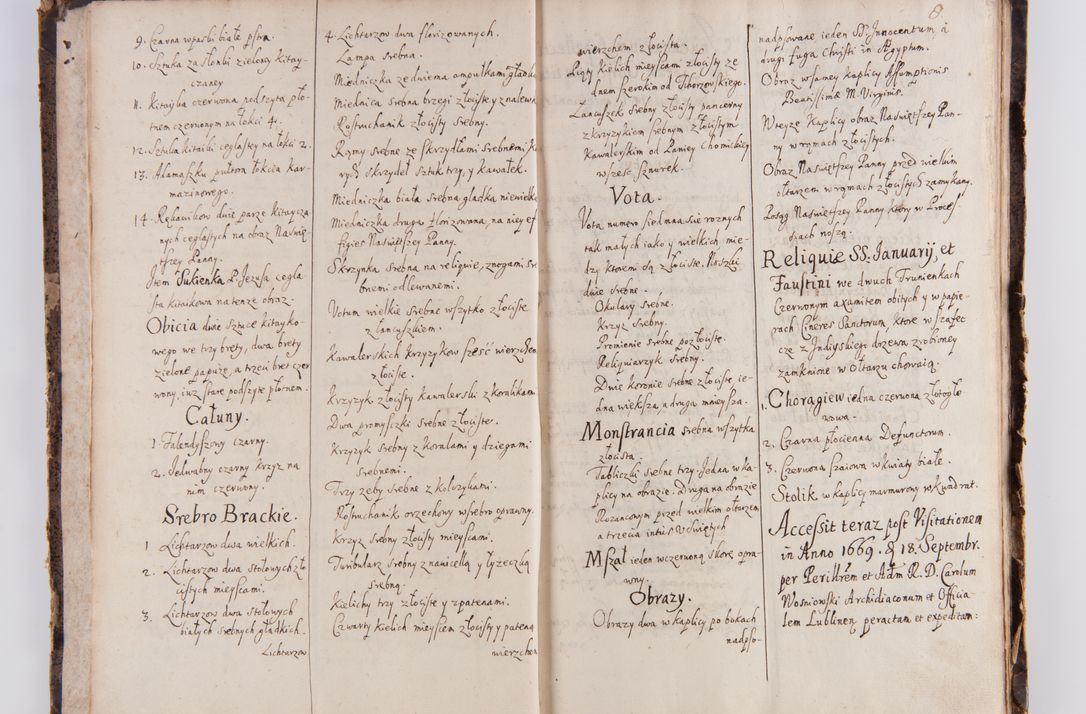 9. Czarna w paski białe pstra.
10. Sztuka za słonki zielony kitay-
czaney
11. Kitayka czerwona podszyta pło-
tnem czerwonym na łokci 4.
12. Sztuka kitaiki ceglastey na łokci 2.
13. Adamaszku pułtora łokcia kar-
mazinowego.
14. Rękawikow dwie parze kitaycza
nych ceglastych na obraz Naświę-
tszey Panny.
Item Sukienka P. Jezusa cegla
sta kitaikowa na tenze obraz.
Obicia dwie sztuce kitayko-
wego we trzy brety, dwa brety
zielone papuze, a trzeci bret czer
wony, iuz stare podszyte płotnem.
Całuny.
1. Falendyszowy czarny.
2. Jedwabny czarny krzyz na
nim czerwony.
Srebro Brackie.
1 Lichtarzow dwa wielkich.
2. Lichtarzow dwa stołowych zło
cistych mieyscami.
3. Lichtarzow dwa stołowych
białych srebnych gładkich.
Lichtarzow
4. Lichtarzow dwa florizowanych.
Lampa srebna.
Miedniczka ze dwiema ampułkami gładka
Miednica srebna brzegi złociste y z nalewa
Rostruchanik złocisty srebny.
Ramy srebne ze skrzydłami srebnemi k
rych skrzydeł sztuk trzy, y kawałek.
Miedniczka biała srebna gladka niewielka
Miedniczka druga florizowana, na niey ef
figies Naświętszey Panny.
Skrzynka srebna na religuie, z nogami sr
bnemi odlewanemi.
Votum wielkie srebne wszytko złociste
z łancuszkiem.
Kawalerskich krzyzykow sześć wierzchem
złociste.
Krzyzyk złocisty kawalerski z koralikami
Dwa promyszki srebne złociste.
Krzyzyk srebny z koralami y dziegami
srebnemi.
Trzy zęby srebne z kolczykami.
Rostruchanik orzechowy w srebro oprawny.
Krzyz srebny złocisty mieyscami.
Turibularz srebny z nawicellą y łyzeczką
srebną.
Kielichy trzy złociste y z patenami.
Czwarty kielich mieyscem złocisty y pateną
wierzchem
wierzchem złocista.
Piąty kielich mieyscami złocisty ze
dnem szerokim od Thorzowskiego.
Łancuszek srebny złocisty pancerny
z krzyzykiem srebnym złocistym
Kawalerskim od Paniey Chomickiey
w sześć sznurek.
Vota.
Vota numero siedmnascie roznych
tak małych iako y wielkich mie-
dzy ktoremi są złociste. Noszki
dwie srebne.
Okulary srebne.
Krzyz srebny.
Promienie srebne pozłociste.
Religuiarzyk srebny.
Dwie koronie srebne złociste, ie-
dna większa, a druga mnieysza.
Monstrancia srebna wszytka
złocista.
Tabliczki srebne trzy. Jedna w ka-
plicy na obrazie. Druga na obrazie
Rozancowym przed wielkim ołtarzem
a trzecia intus v Swiętych
Mszał ieden w czerwoną skorę opra-
wny.
Obrazy.
Obrazy dwa w kaplicy po bokach
nadpso-
8
nadpsowane ieden SS. Innocentum à
drugi fuga Christi in Ægyptum.
Obraz w samey kaplicy Assumptionis
Beatissimæ M. Virginis.
W teyze Kaplicy obraz Naświętszey Pan-
ny w ramach złocistych.
Obraz Naświętszey Panny przed wielkim
ołtarzem w ramach złocistych zamykany.
Posąg Naświętszey Panny ktory w Proces-
siach noszą.
Reliquiæ SS. Januarij, et
Faustini we dwuch Trunienkach
Czerwonym axamitem obitych y w papie-
rach Cineres Sanctorum, ktore w szafec
cze z Indyiskiego drzewa zrobioney
zamknione w Ołtarzu chowaią.
1. Chorągiew iedna czerwona złotogło-
wowa.
2. Czarna płocienna Defunctorum.
3. Czerwona szaiowa w kwiaty białe.
Stolik w kaplicy marmurowy w kwadrat.
Accessit teraz post Visitationem
in Anno 1669. d. 18. Septembr.
per Perillrem et Adm R. D. Carolum
Wosniowski Archidiaconum et Officia
lem Lublinen peractam et expeditam: